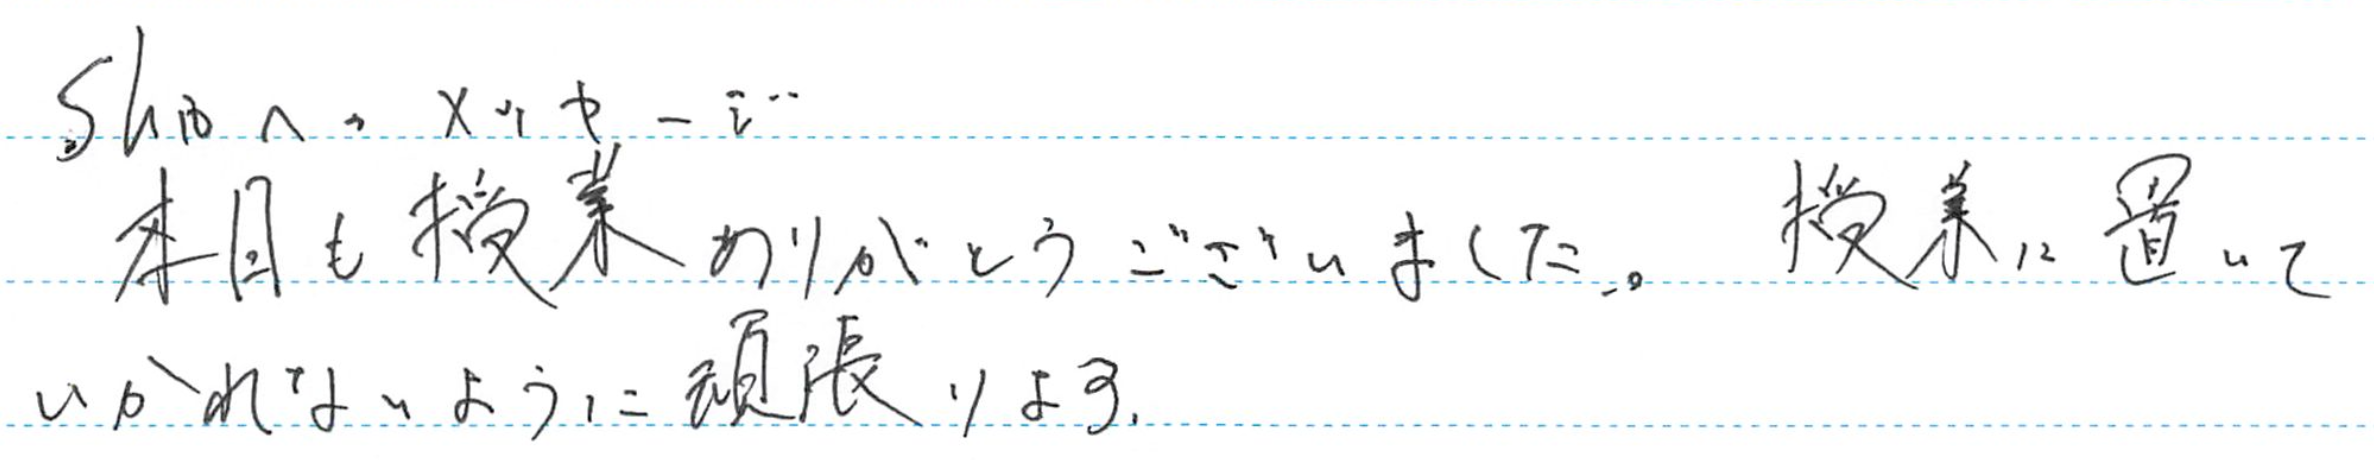 Shoへのメッセージ
本日も授業ありがとうございました。授業に置いて
いかれないように頑張ります.